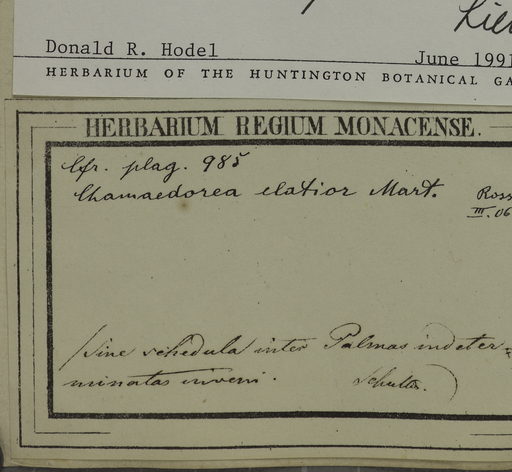 Lie
Donald R. Hodel June 1991
HERBARIUM OF THE HUNTINGTON BOTANICAL GA
HERBARIUM REGIUM MONACENSE.
Cfr. plag. 985
Chamaedorea elatior Mart. Ross
III. 06
(Sine schedula inter Palmas indeter=
minatas inveni. Schultes.)